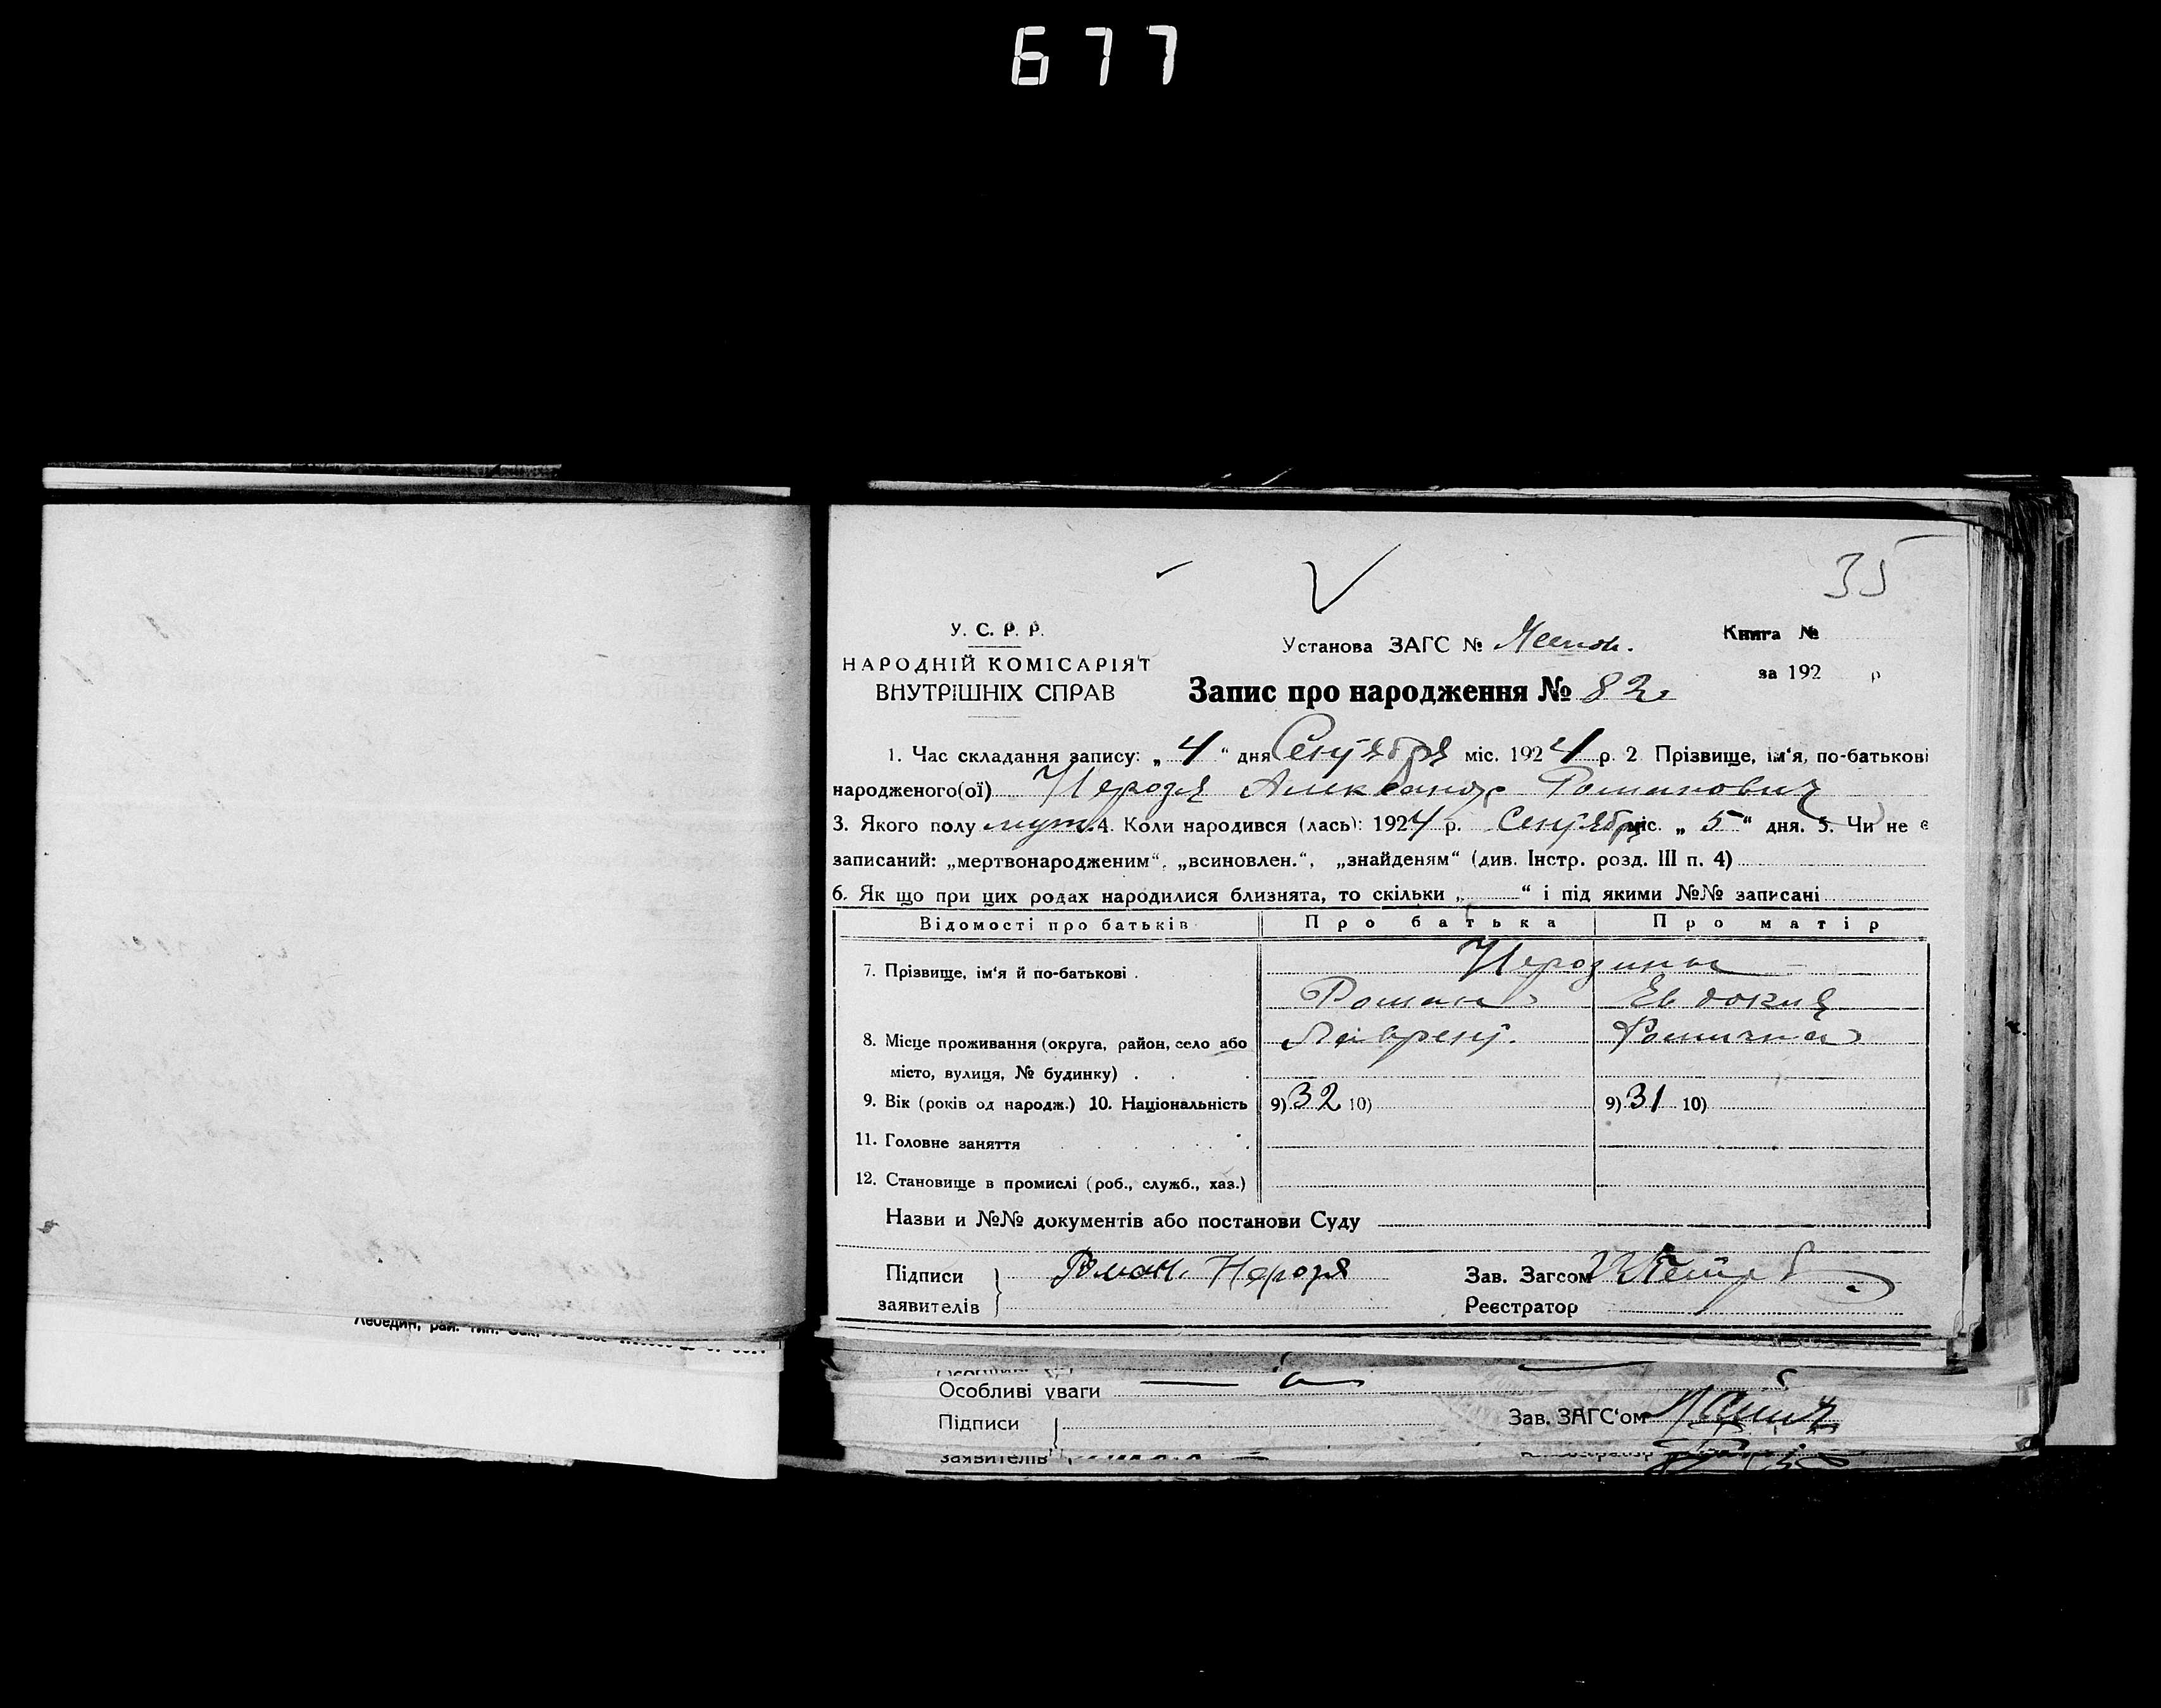 677
35
У. С. Р. Р.
НАРОДНІЙ КОМІСАРІЯТ
ВНУТРІШНІХ СПРАВ
Установа ЗАГС №
Книга №
за 192 р
Запис про народження № 82
1. Час складання запису: „ 4 “ дня Сентября міс. 1924 р. 2 Прізвище, ім‘я, по-батькові
народженого(ої) Нерозя Александр Романович
3. Якого полу муж. 4. Коли народився (лась): 1924 р. Сентября міс. „ 5 “ дня. 5. Чи не є
записаний: „мертвонародженим“, „всиновлен.“, „знайденям“ (див. Інстр. розд. III п. 4)
6. Як що при цих родах народилися близнята, то скільки „ “ і під якими №№ записані
Відомості про батьків Про батька Про матір
7. Прізвище, ім‘я й по-батькові .
Роман Евдокия
8. Місце проживання (округа, район, село або Лаврент.
місто, вулиця, № будинку) .
9. Вік (років од народж.) 10. Національність 9) 32 10) 9) 31 10)
11. Головне заняття
12. Становище в промислі (роб., служб., хаз.)
Назви и №№ документів або постанови Суду
Підписи Роман. Нерозя Зав. Загсом
заявителів Реєстратор
Лебедин, рай. тип.
Особливі уваги
Підписи Зав. ЗАГС‘ом
заявителів